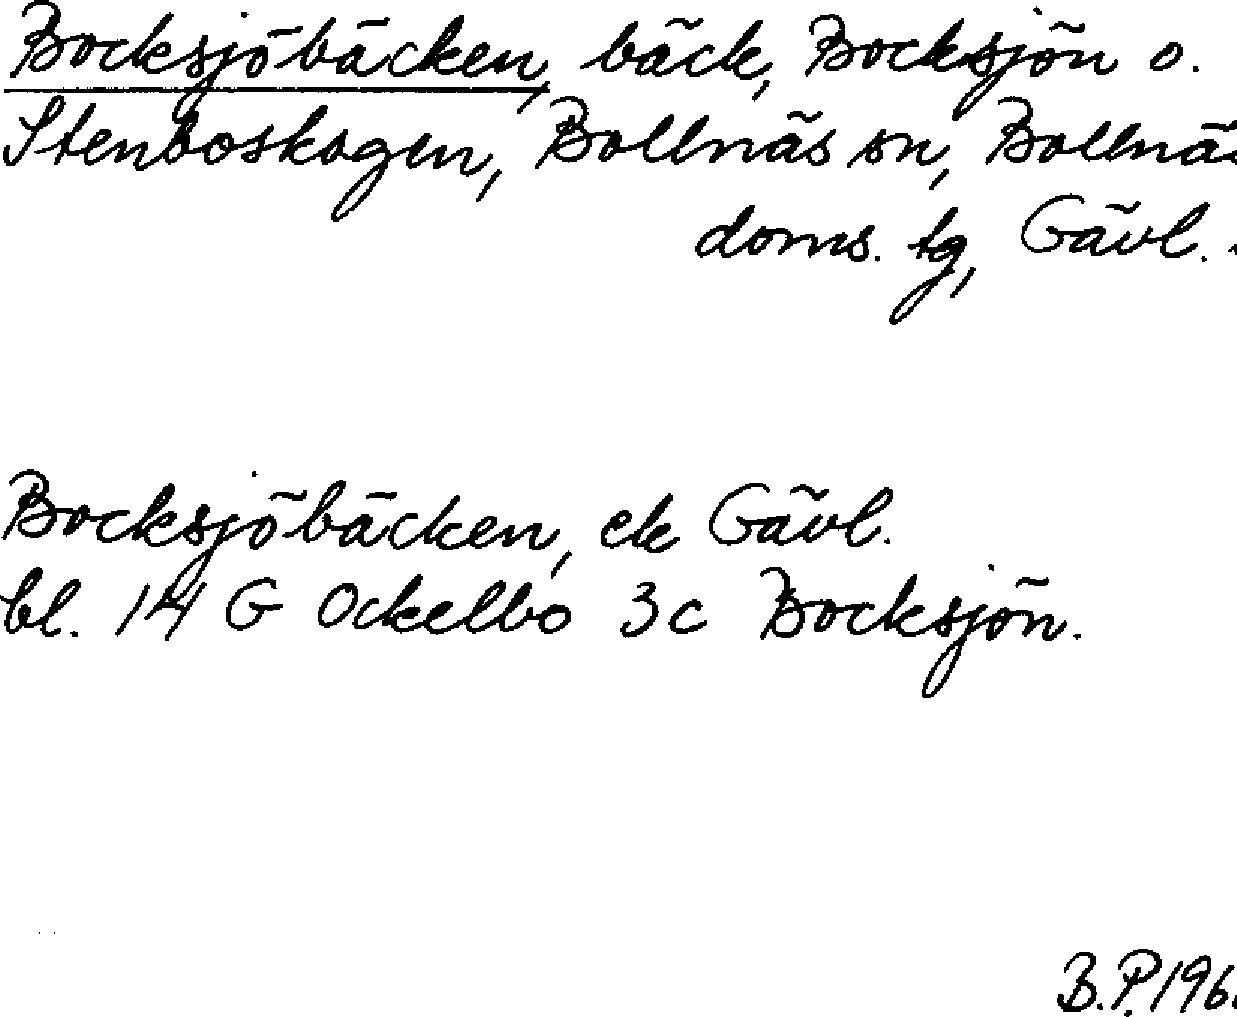 Bocksjöbäcken, bäck, Bocksjön o.
Stenboskogen, Bollnäs sn, Bollnäs
doms. tg, Gävl.
Bocksjöbäcken, ek Gävl.
bl. 14 G Ockelbo 3c Bocksjön.
B.P. 196